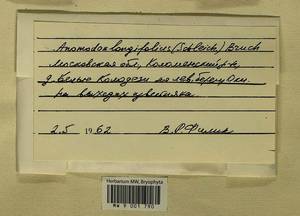 Anomodon longifolius (Schleich.) Bruch
Московская обл., Коломенский р-н,
д. Белые Колодези на лев. берегу Оки.
на выходах известняка
2.5 1962 В.Р. Филин
Herbarium MW, Bryophyta